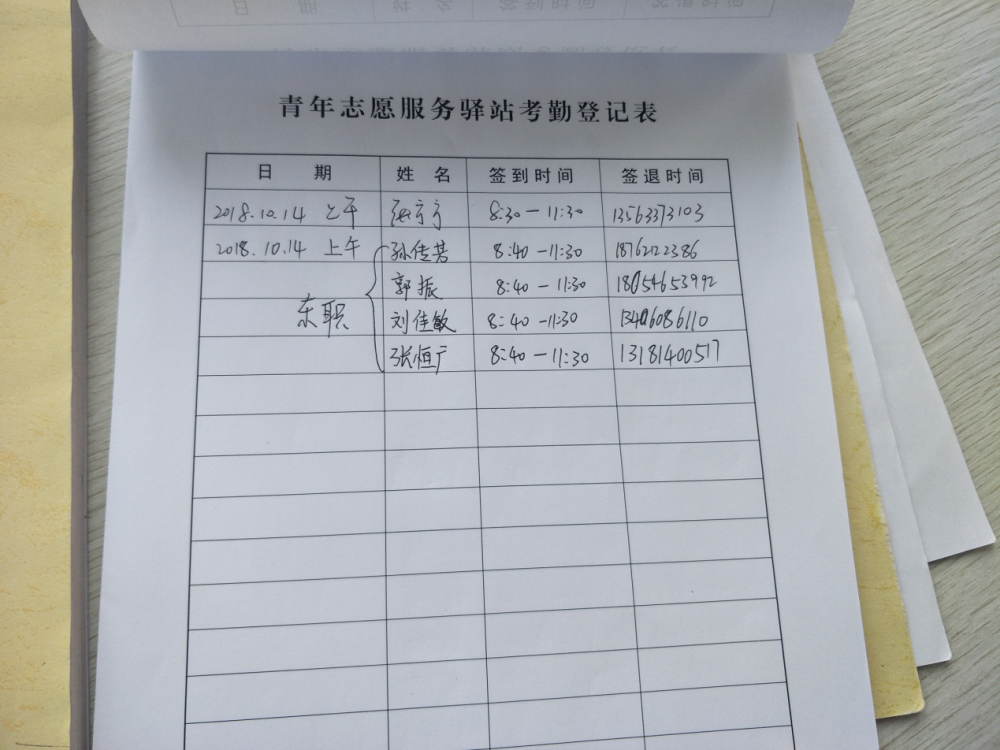 日 期 姓 名 签到时间 签退时间
青年志愿服务驿站考勤登记表
日 期 姓 名 签到时间 签退时间
2018.10.14 上午 8:30-11:30 13563373103
2018.10.14 上午 孙传芳 8:40-11:30 18762122386
郭振 8:40-11:30 18054653992
东职 刘佳敏 8:40-11:30 13406086110
张恒广 8:40-11:30 13181400517